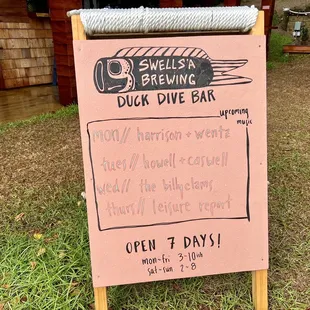 SWELLS'A
BREWING
DUCK DIVE BAR
upcoming
music
mon// harrison + wentz
tues// howell + coswell
wed// the billyclams
thurs// leisure report
OPEN 7 DAYS!
mon-fri 3-10ish
sat-sun 2-8